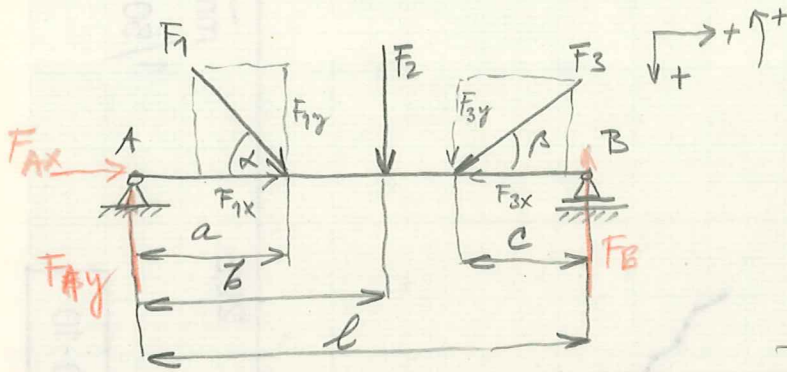 F1
F2
F3
+
+
+
F1y
F3y
A
α
β
B
FAx
F1x
F3x
a
c
FAy
b
FB
l